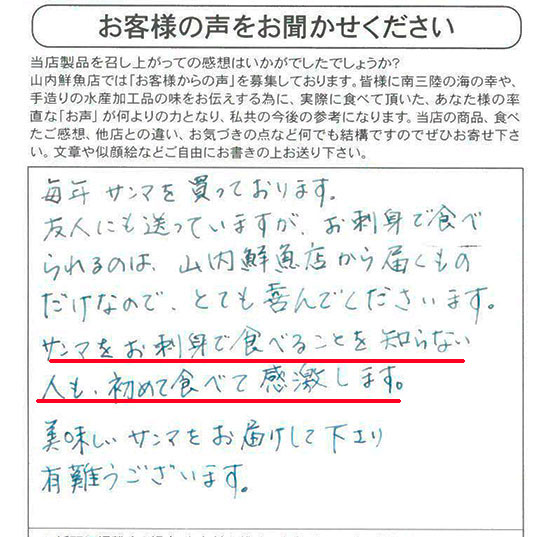 お客様の声をお聞かせください
当店製品を召し上がっての感想はいかがでしたでしょうか?
山内鮮魚店では「お客様からの声」を募集しております。皆様に南三陸の海の幸や、
手造りの水産加工品の味をお伝えする為に、実際に食べて頂いた、あなた様の率
直な「お声」が何よりの力となり、私共の今後の参考になります。当店の商品、食べ
たご感想、他店との違い、お気づきの点など何でも結構ですのでぜひお寄せ下さ
い。文章や似顔絵などご自由にお書きの上お送り下さい。
毎年 サンマを買っております。
友人にも送っていますが、お刺身で食べ
られるのは、山内鮮魚店から届くもの
だけなので、とても喜んでくださいます。
サンマをお刺身で食べることを知らない
人も、初めて食べて感激します。
美味しいサンマをお届けして下エり
有難うございます。